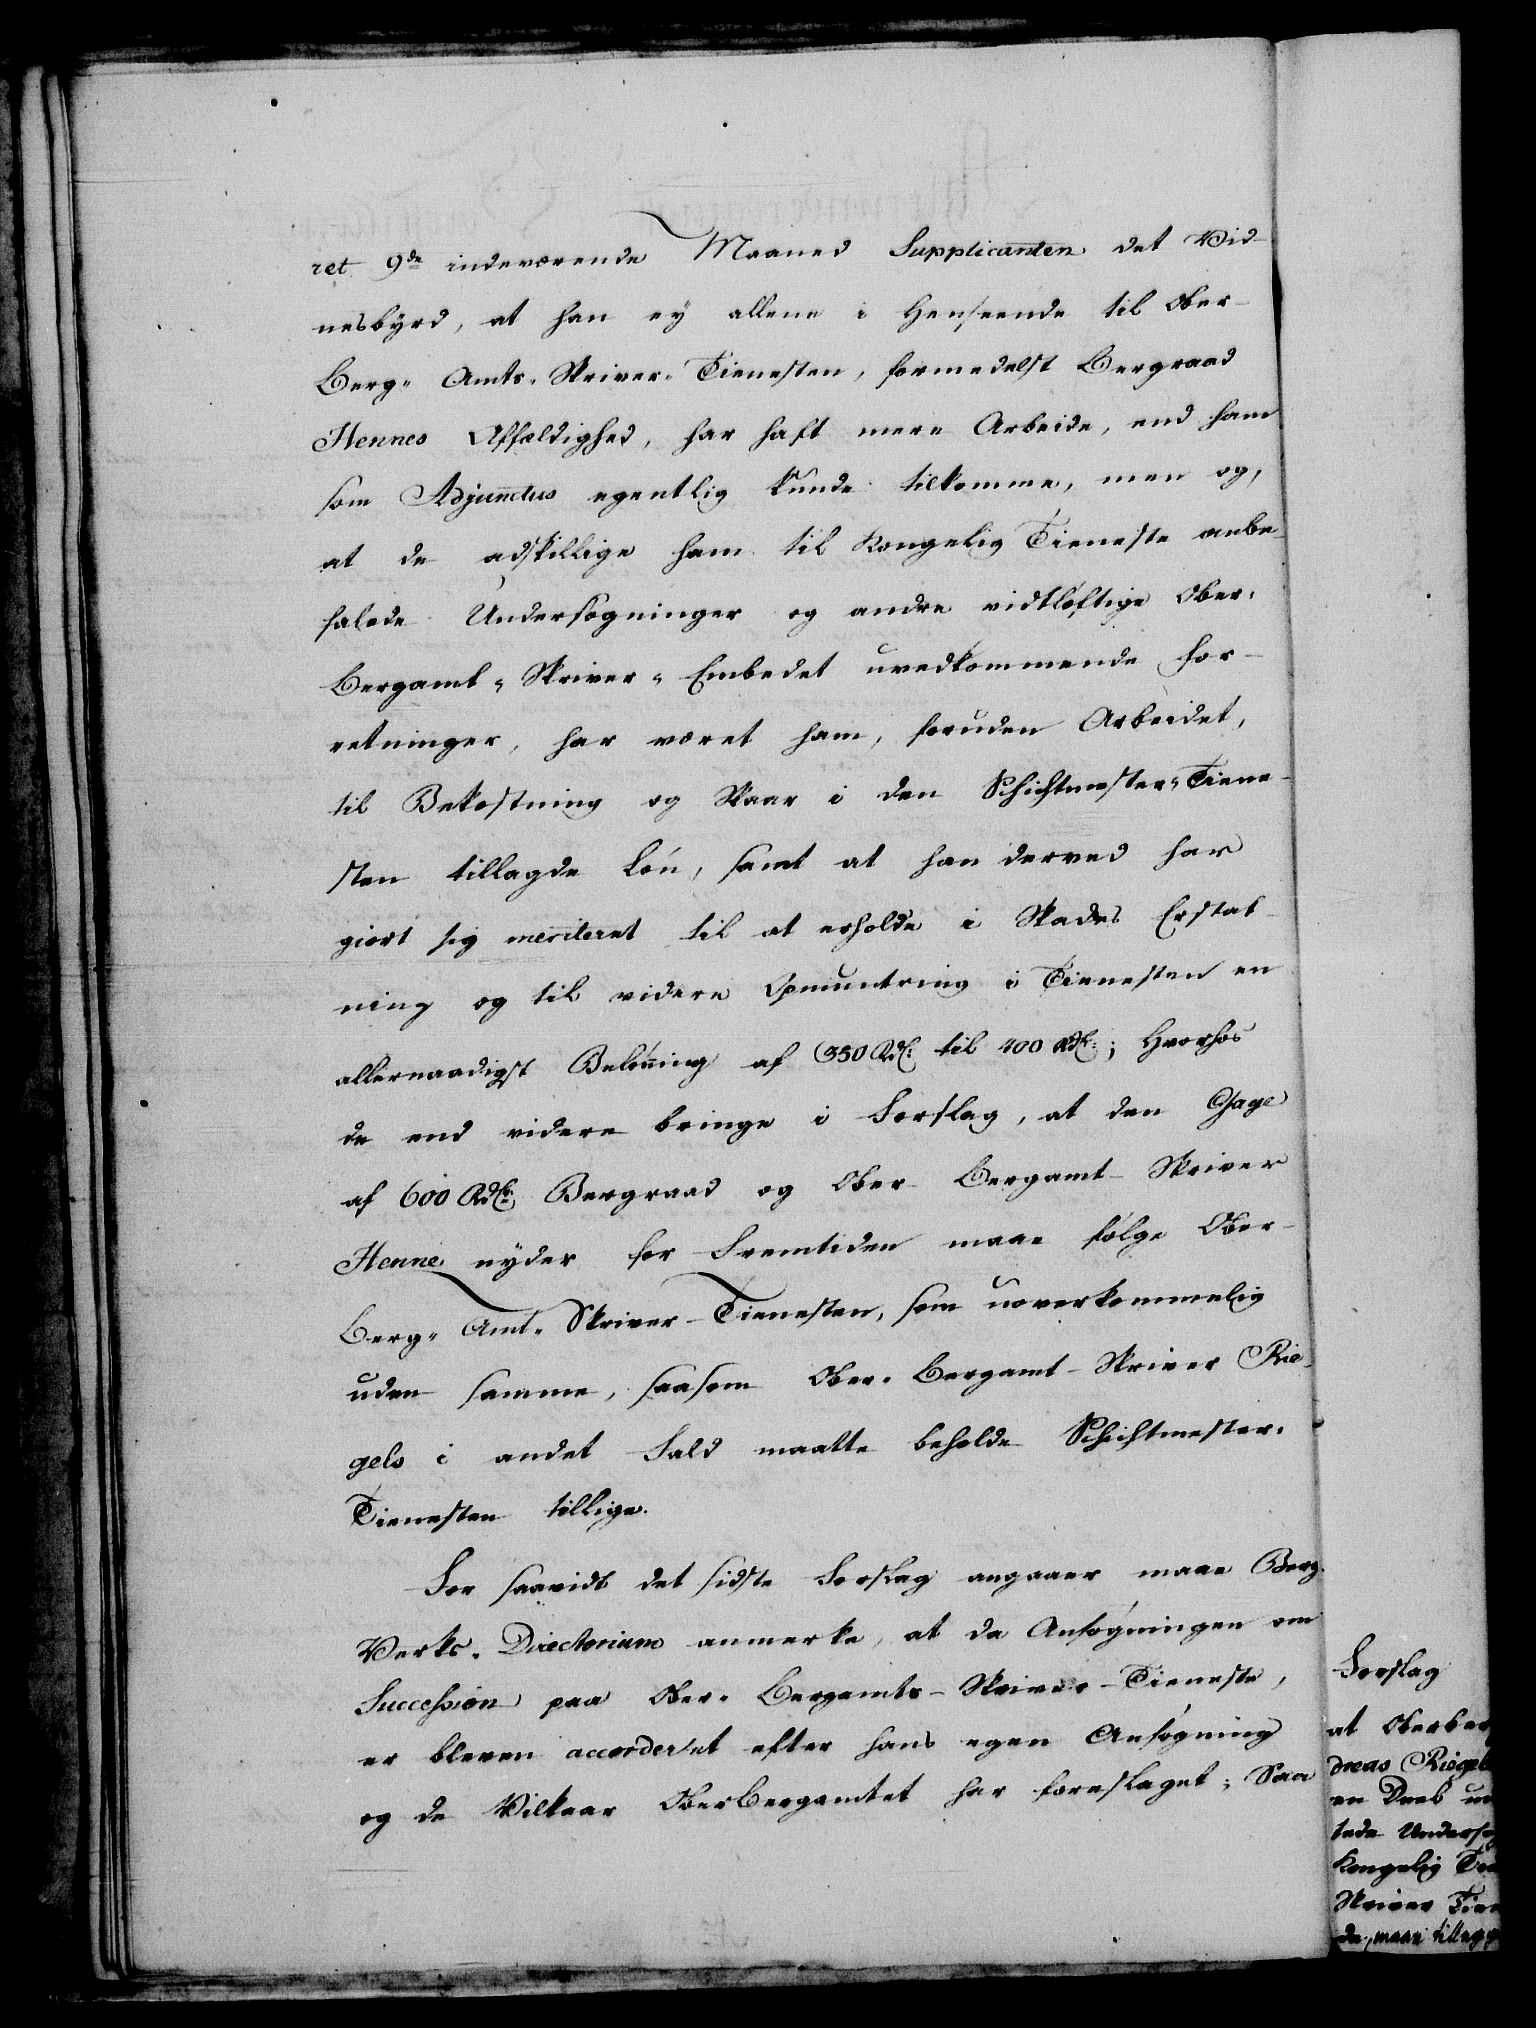 ret 9de indeværende Maaned Supplicanten det Vid-
nesbyrd, at han ey allene i Henseende til Ober-
Berg- Amts- Skriver- Tienesten, formedelst Bergraad
Hennes Affældighed, har haft mere Arbeide, end ham
som Adjunctus egentlig kunde tilkomme, men og,
at de adskillige ham til Kongelig Tieneste anbe
falede Undersøgninger og andre vidtløftige Ober-
Bergamt- Skriver- Embedet uvedkommende For-
retninger, har været ham, foruden Arbeidet,
til Bekostning og Skaar i den Schichtmester- Tiene-
sten tillagde Løn, samt at han derved har
giort sig meriteret til at erholde i Skades Erstat-
ning og til videre Opmuntring i Tienesten en
allernaadigst Belønning af 350 Rdlr. til 400 Rdlr.; Hvorhos
de end videre bringe i Forslag, at den Gage
af 600 Rdlr. Bergraad og Ober- Bergamt- Skriver
Henne nyder for Fremtiden maae følge Ober-
Berg- Amt- Skriver- Tienesten, som uoverkommelig
uden samme, saasom Ober- Bergamt- Skriver Rie-
gels i andet Fald maatte beholde Schichtmester-
Tienesten tillige.
For saavidt det sidste Forslag angaaer maae Berg-
Verks- Directorium anmerke, at da Ansøgningen om
Succession paa Ober- Bergamts- Skriver- Tieneste,
er bleven accorderet efter hans egen Ansøgning
og de Vilkaar OberBergamtet har foreslaget; Saa
Forslag
at Oberber
dreas Riegel
en Deel
tede Undersøg
Kongelig Tie
Skriver Tien
de, maae tillægg